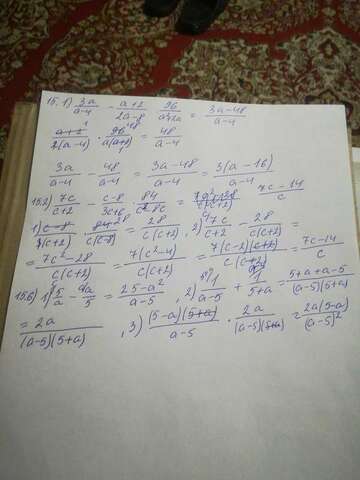 15.1) 3a/(a-4) - (a+2)/(2a-8) · 96/(a²+2a) = (3a-48)/(a-4)
(a+2)/(2(a-4)) · 96/(a(a+2)) = 48/(a-4)
3a/(a-4) - 48/(a-4) = (3a-48)/(a-4) = 3(a-16)/(a-4)
15.2) 7c/(c+2) - (c-8)/(3c+6) · 84/(c²-8c) = (7c²-28)/(c(c+2)) = (7c-14)/c
1) (c-8)/(3(c+2)) · 84/(c(c-8)) = 28/(c(c+2)), 2) 7c/(c+2) - 28/(c(c+2)) =
= (7c²-28)/(c(c+2)) = 7(c²-4)/(c(c+2)) = 7(c-2)(c+2)/(c(c+2)) = (7c-14)/c
15.6) 1) 5/a - a/5 = (25-a²)/(a-5), 2) 1/(a-5) + 1/(5+a) = (5+a+a-5)/((a-5)(5+a))
= 2a/((a-5)(5+a)), 3) (5-a)(5+a)/(a-5) · 2a/((a-5)(5+a)) = 2a(5-a)/(a-5)²